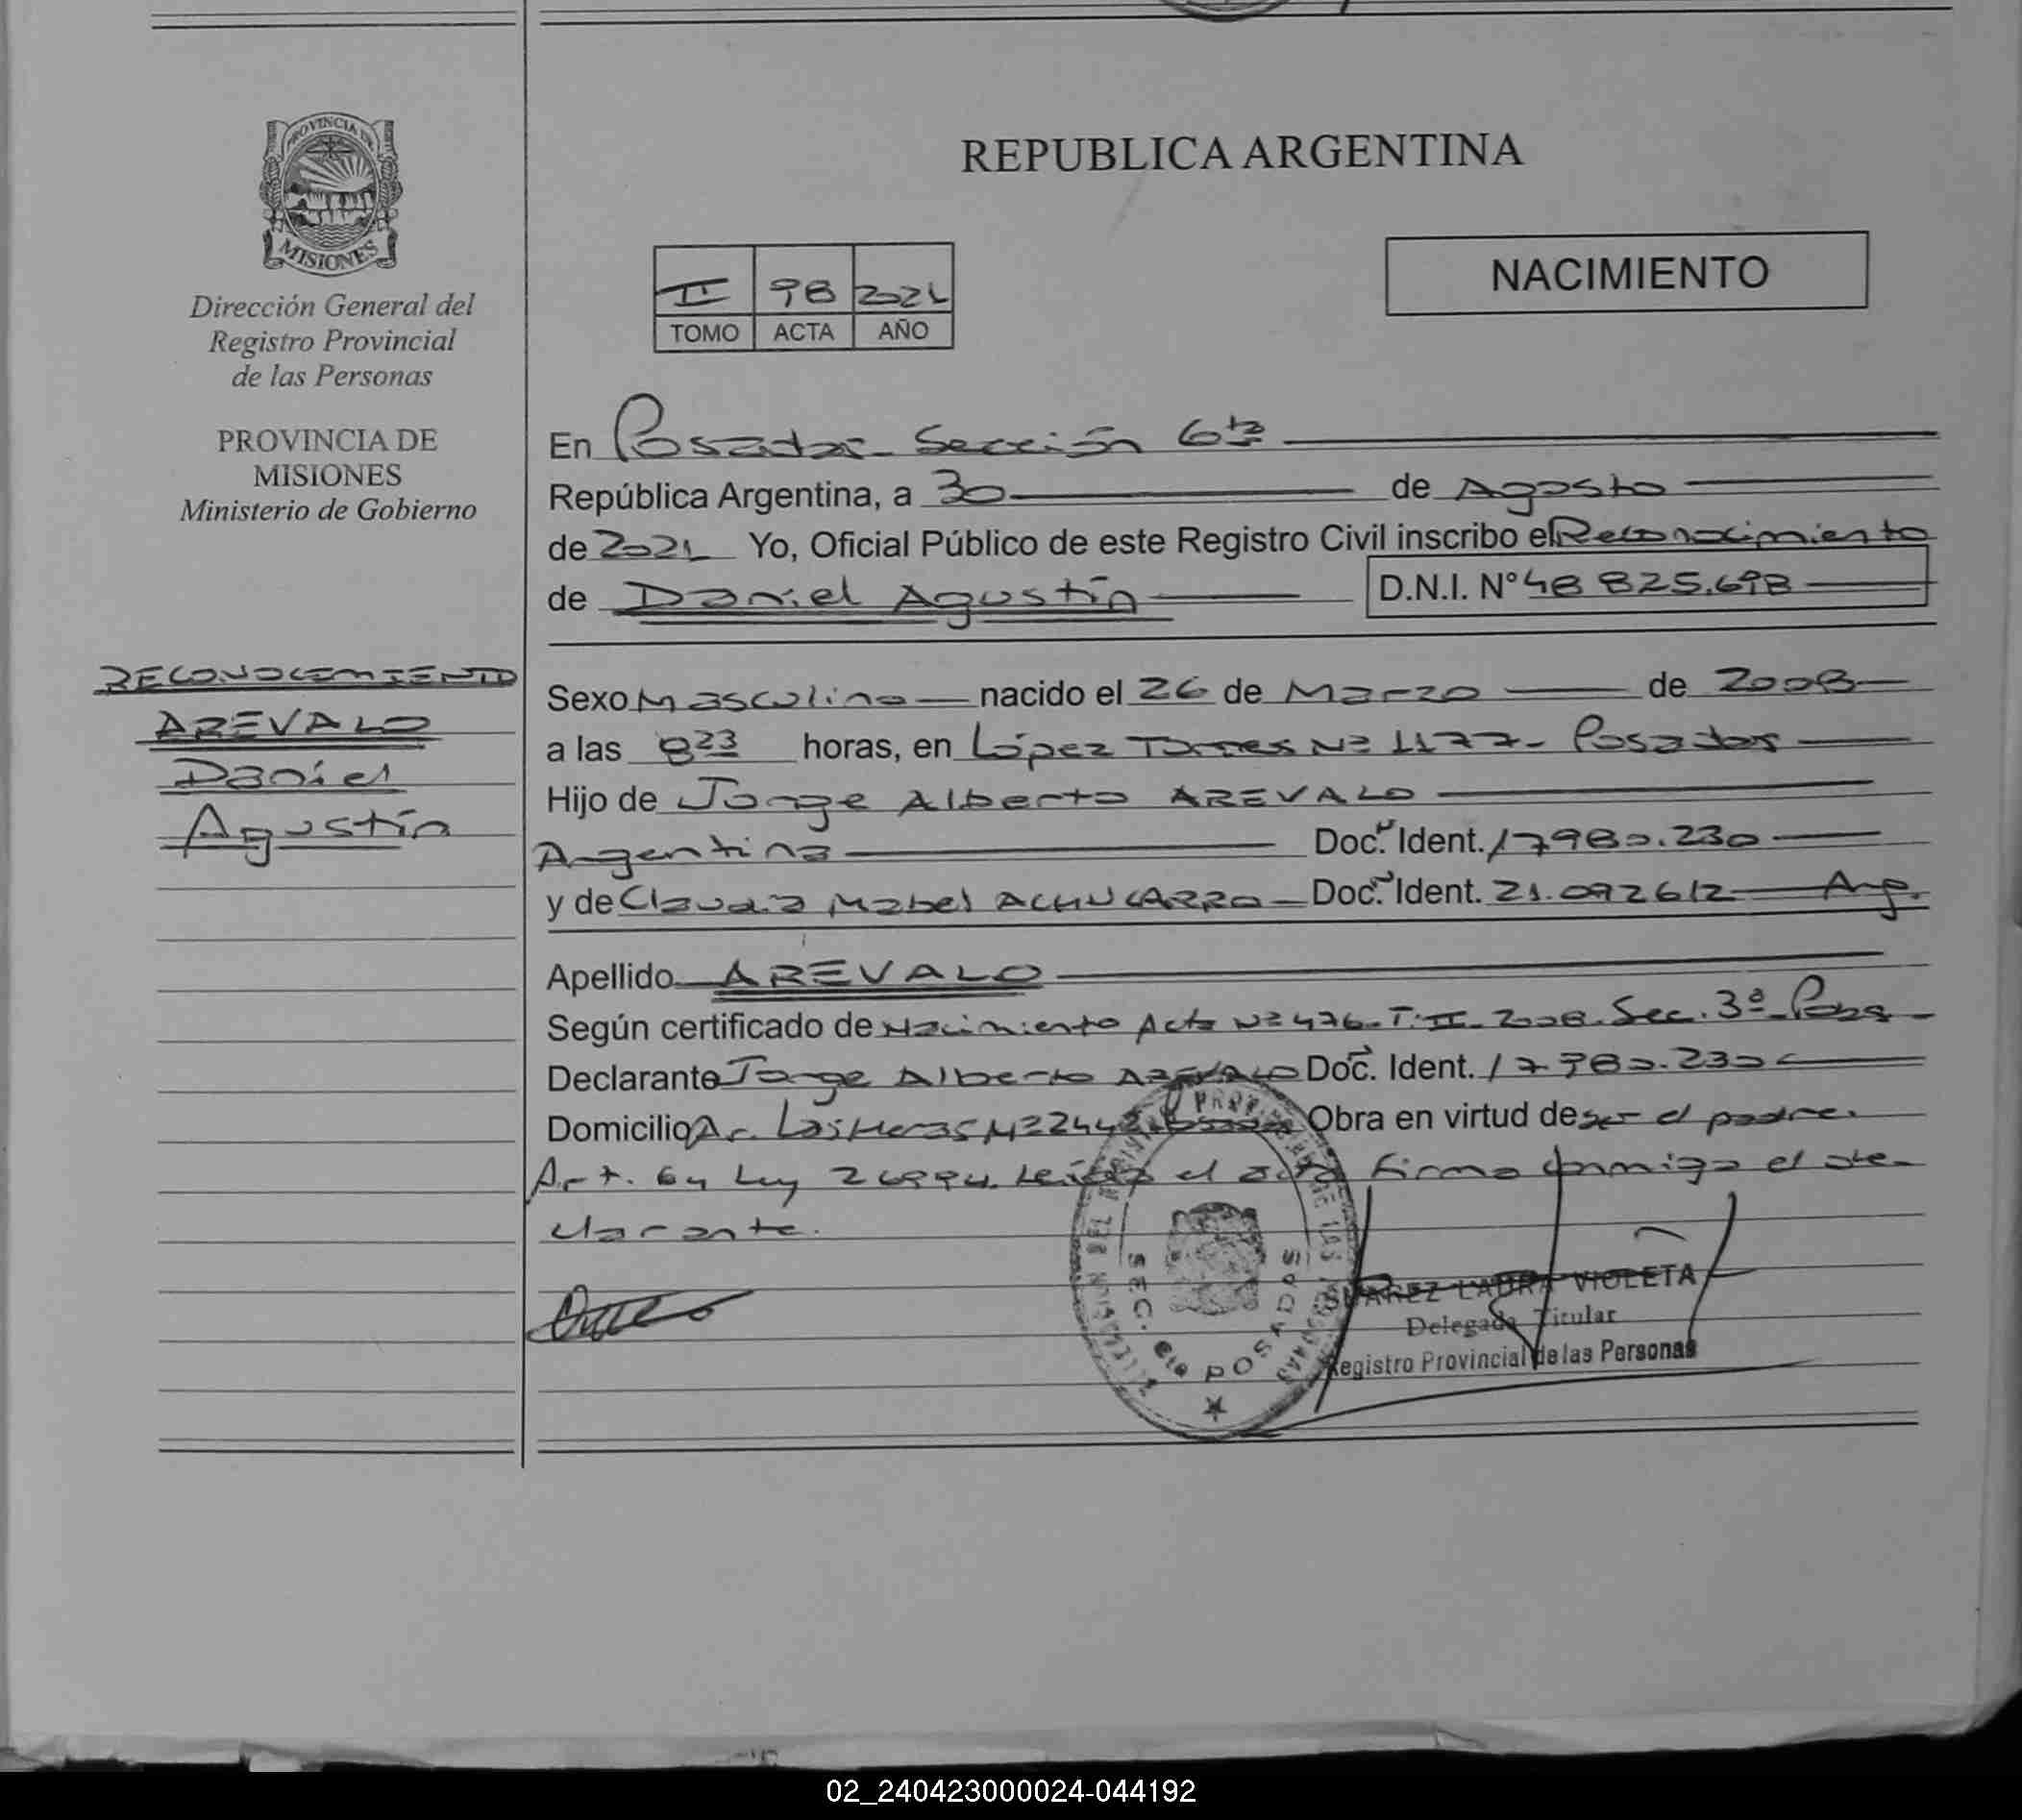 PROVINCIA DE
MISIONES
Dirección General del
Registro Provincial
de las Personas
PROVINCIA DE
MISIONES
Ministerio de Gobierno
RECONOCIMIENTO
AREVALO
Daniel
Agustín
REPUBLICA ARGENTINA
II 98 2021
TOMO ACTA AÑO
NACIMIENTO
En Posadas - Sección 6ta
República Argentina, a 30 de Agosto
de 2021 Yo, Oficial Público de este Registro Civil inscribo el Reconocimiento
de Daniel Agustín D.N.I. N° 48 825.698
Sexo Masculino nacido el 26 de Marzo de 2008
a las 8 23 horas, en López Torres Nº 1177- Posadas
Hijo de Jorge Alberto AREVALO
Argentina Doc. Ident. 17980.230
y de Claudia Mabel ACHUCARRO Doc. Ident. 21.092612 Arg.
Apellido AREVALO
Según certificado de Nacimiento Acta Nº 476- T: II- 2008. Sec. 3ª- Pdas -
Declarante Jorge Alberto AREVALO Doc. Ident. 17.980.230
Domicilio Av. Las Heras Nº 2442 Obra en virtud de ser el padre.
Art. 64 Ley 26994. Leída el acta firma conmigo el de-
clarante.
SEC. 6ta POSADAS
SUAREZ LAURA VIOLETA
Delegada Titular
Registro Provincial de las Personas
02_240423000024-044192